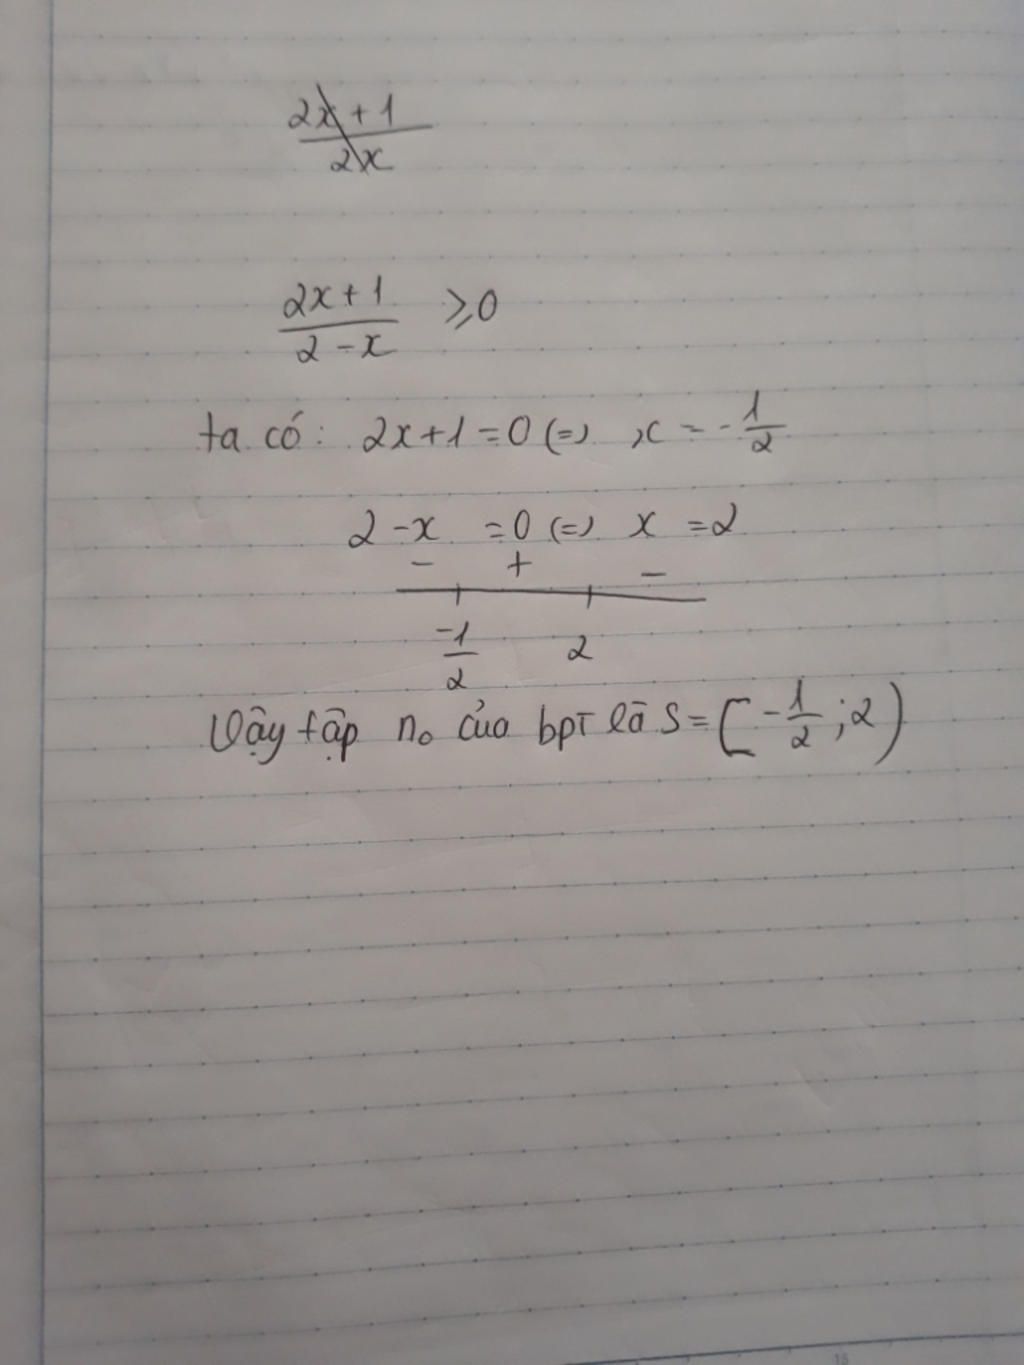 2x + 1
2x
2x+1 ⩾0
2 -x
ta có: 2x+1 =0 (=) x = - 1/2
2 -x =0 (=) x =2
- + -
-1/2 2
Vậy tập n₀ của bpt là S = [ - 1/2 ; 2 )